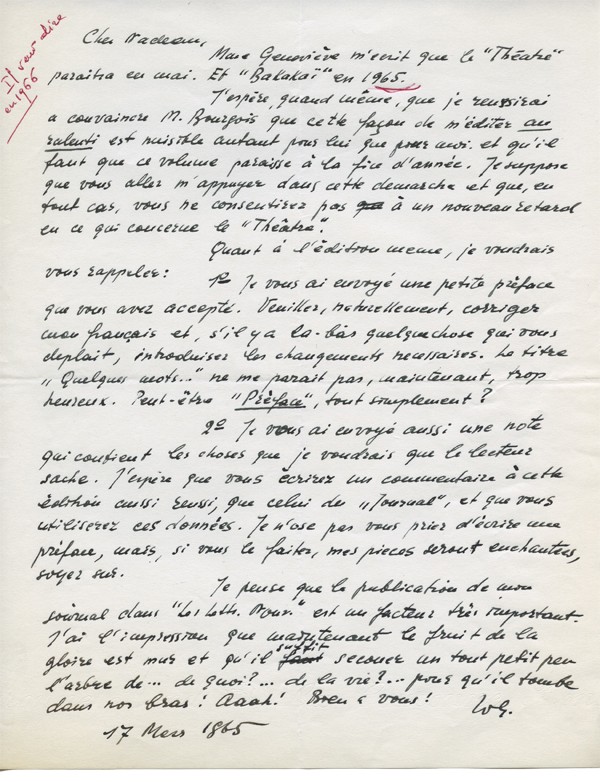 Il veut dire
en 1966
Cher Nadeau,
Mme Geneviève m'écrit que le "Théatre"
paraitra en mai. Et "Balakaï" en 1965.
J'espère, quand même, que je reussirai
a convaincre M. Bourgois que cette façon de m'éditer au
ralenti est nuisible autant pour lui que pour moi. et qu'il
faut que ce volume paraisse à la fin d'année. Je suppose
que vous allez m'appuyer dans cette demarche et que, en
tout cas, vous ne consentirez pas à un nouveau retard
en ce qui concerne le "Théâtre".
Quant à l'édition meme, je voudrais
vous rappeler:
1º Je vous ai envoyé une petite préface
que vous avez accepté. Veuillez, naturellement, corriger
mon français et, s'il y a la-bàs quelquechose qui vous
deplait, introduisez les changements necessaires. Le titre
„Quelques mots..." ne me parait pas, maintenant, trop
heureux. Peut-être "Préface", tout simplement?
2º Je vous ai envoyé aussi une note
qui contient les choses que je voudrais que le lecteur
sache. J'espère que vous écrirez un commentaire à cette
édition aussi reussi, que celui du „Journal", et que vous
utiliserez ces données. Je n'ose pas vous prier d'écrire une
préface, mais, si vous le faites, mes pieces seront enchantées,
soyez sur.
Je pense que la publication de mon
journal dans "Les Lett. Nouv." est un facteur très important.
J'ai l'impression que maintenant le fruit de la
gloire est mur et qu'il suffit secouer un tout petit peu
l'arbre de... de quoi?... de la vie?... pour qu'il tombe
dans nos bras! Aaah! Bien a vous!
WG.
17 Mars 1965